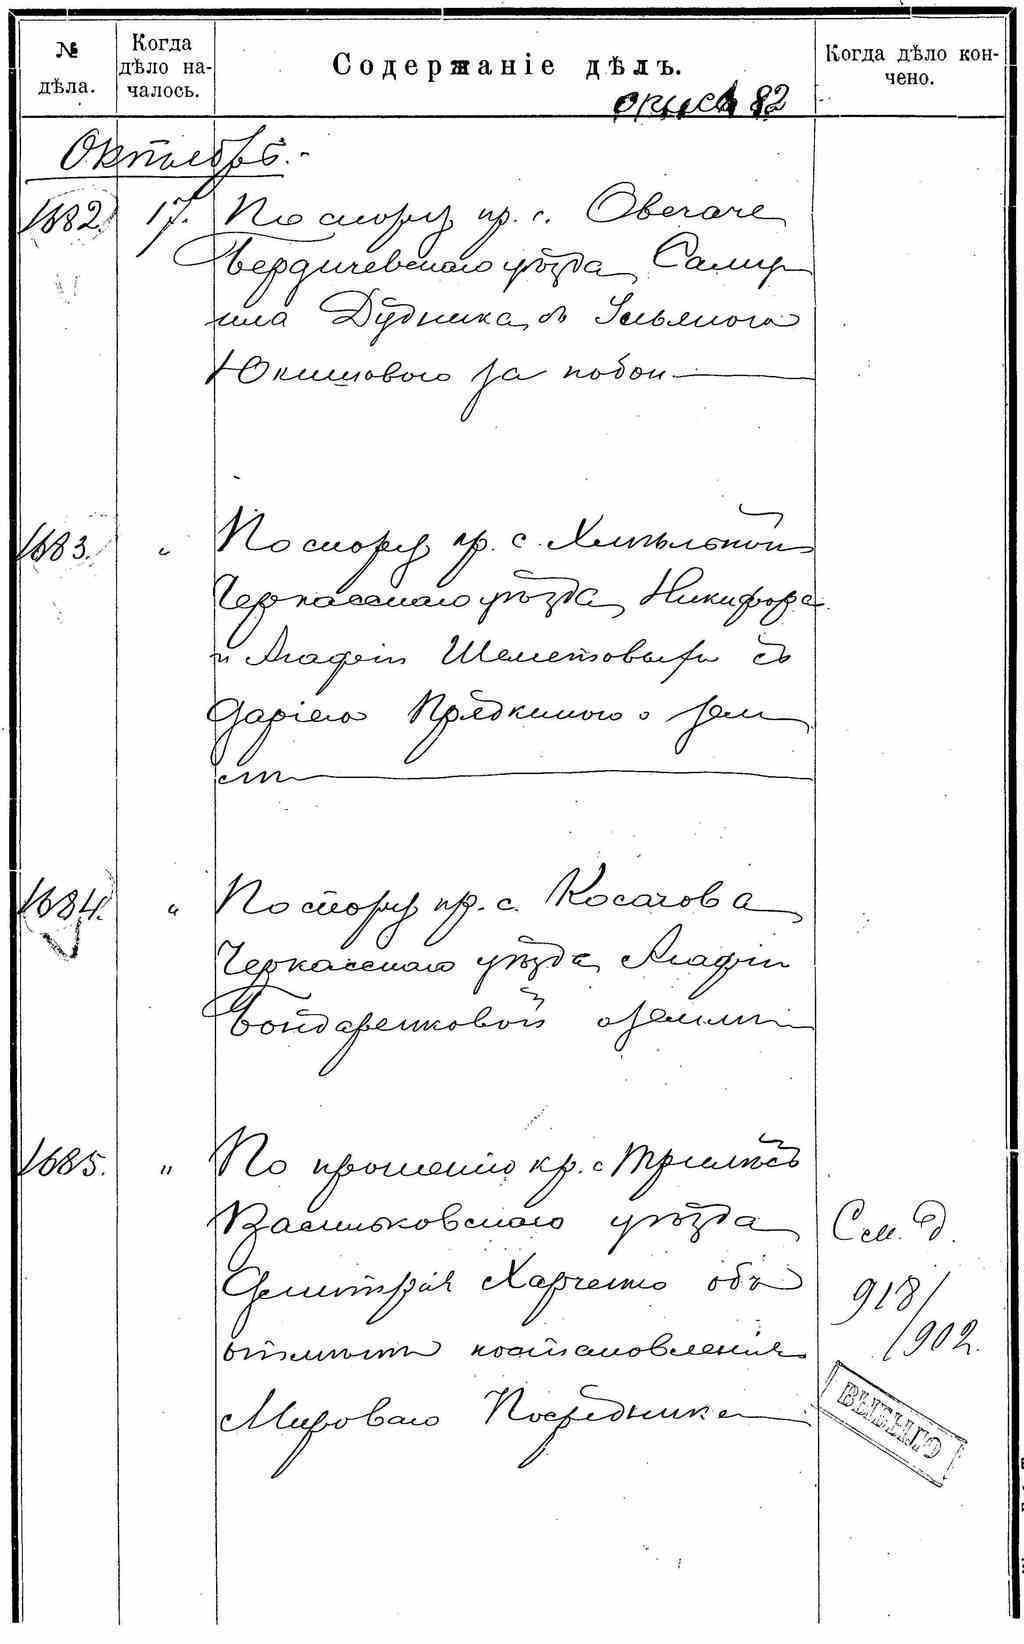 № дѣла.
Когда дѣло на-
чалось.
Содержаніе дѣлъ.
Когда дѣло кон-
чено.
опись 82
Октябрь.
1682 17. По спору кр. с. Овечаче
Бердичевскаго уѣзда Саму
ила Дудника съ Ульяною
за побои
1683. " По спору кр. с.
Черкасскаго уѣзда Никифора
и Агафіи Шеметовыхъ съ
Даріею о зем
ли
1684. " По спору кр. с. Косачова
Черкасскаго уѣзда Агафіи
Бондаренковой о земли
1685. " По прошенію кр. с Трилѣсъ
Васильковскаго уѣзда
Димитрія Харченко объ
отмѣнѣ постановленія
Мироваго Посредника
См. д.
918/
1902.
ВЫБЫЛО